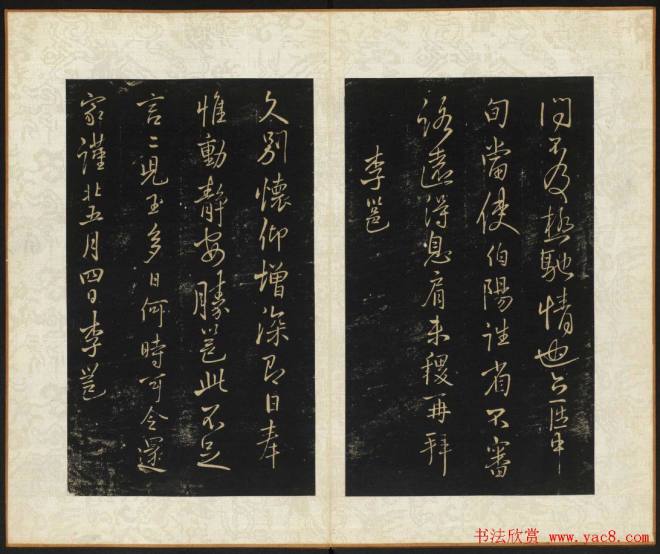 問不及極馳情也
旬當使伯陽往省不審
路遠得息肩未稷再拜
李邕
久別懷仰增深即日奉
惟動靜安勝邕此不足
言〻兒至多日何時可令還
家謹狀五月四日李邕
书法欣赏 www.yac8.com